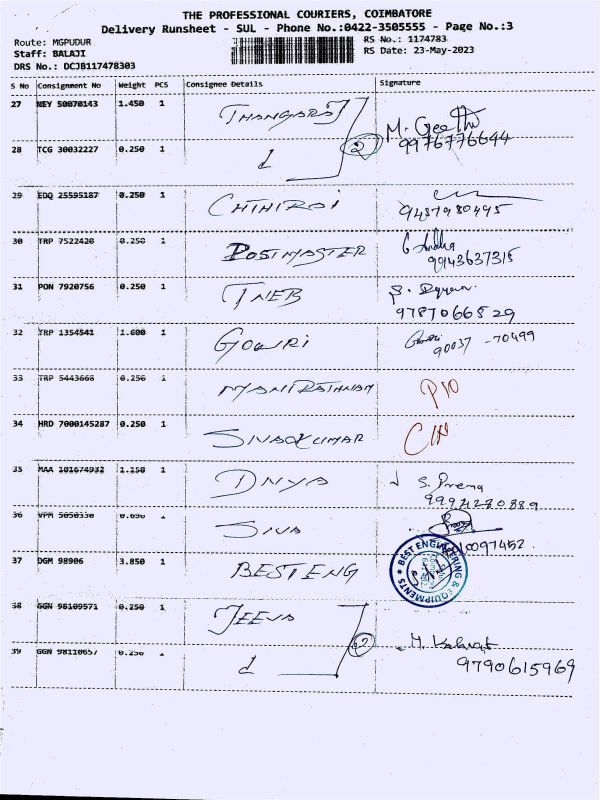 THE PROFESSIONAL COURIERS, COIMBATORE
Delivery Runsheet - SUL - Phone No.:0422-3505555 - Page No.:3
Route: MGPUDUR
RS No.: 1174783
Staff: BALAJI
RS Date: 23-May-2023
DRS No.: DCJB117478303
S No Consignment No Weight PCS Consignee Details Signature
27 NEY 50070143 1.450 1 THANGARAJ M. Geetha
9976776644
28 TCG 30032227 0.250 1 2
29 EDQ 25595187 0.250 1 CHTHIROI
9487980495
30 TRP 7522420 0.250 1 POSTMASTER
9943637315
31 PON 7920756 0.250 1 TNEB
9787066829
32 TRP 1354541 1.600 1 GOWRI
90037 -70499
33 TRP 5443668 0.250 1 MANIRATHNAM
34 HRD 7000145287 0.250 1 SIVAKUMAR
35 MAA 101674932 1.150 1 DIVYA S. Prema
9994280889
36 VPM 5050330 0.690 1 SIVA
0097452
37 DGM 98906 3.850 1 BEST ENG
BEST ENGINEERING & EQUIPMENTS
38 GGN 98109571 0.250 1 JEEVA
39 GGN 98110657 0.250 2
9790615969